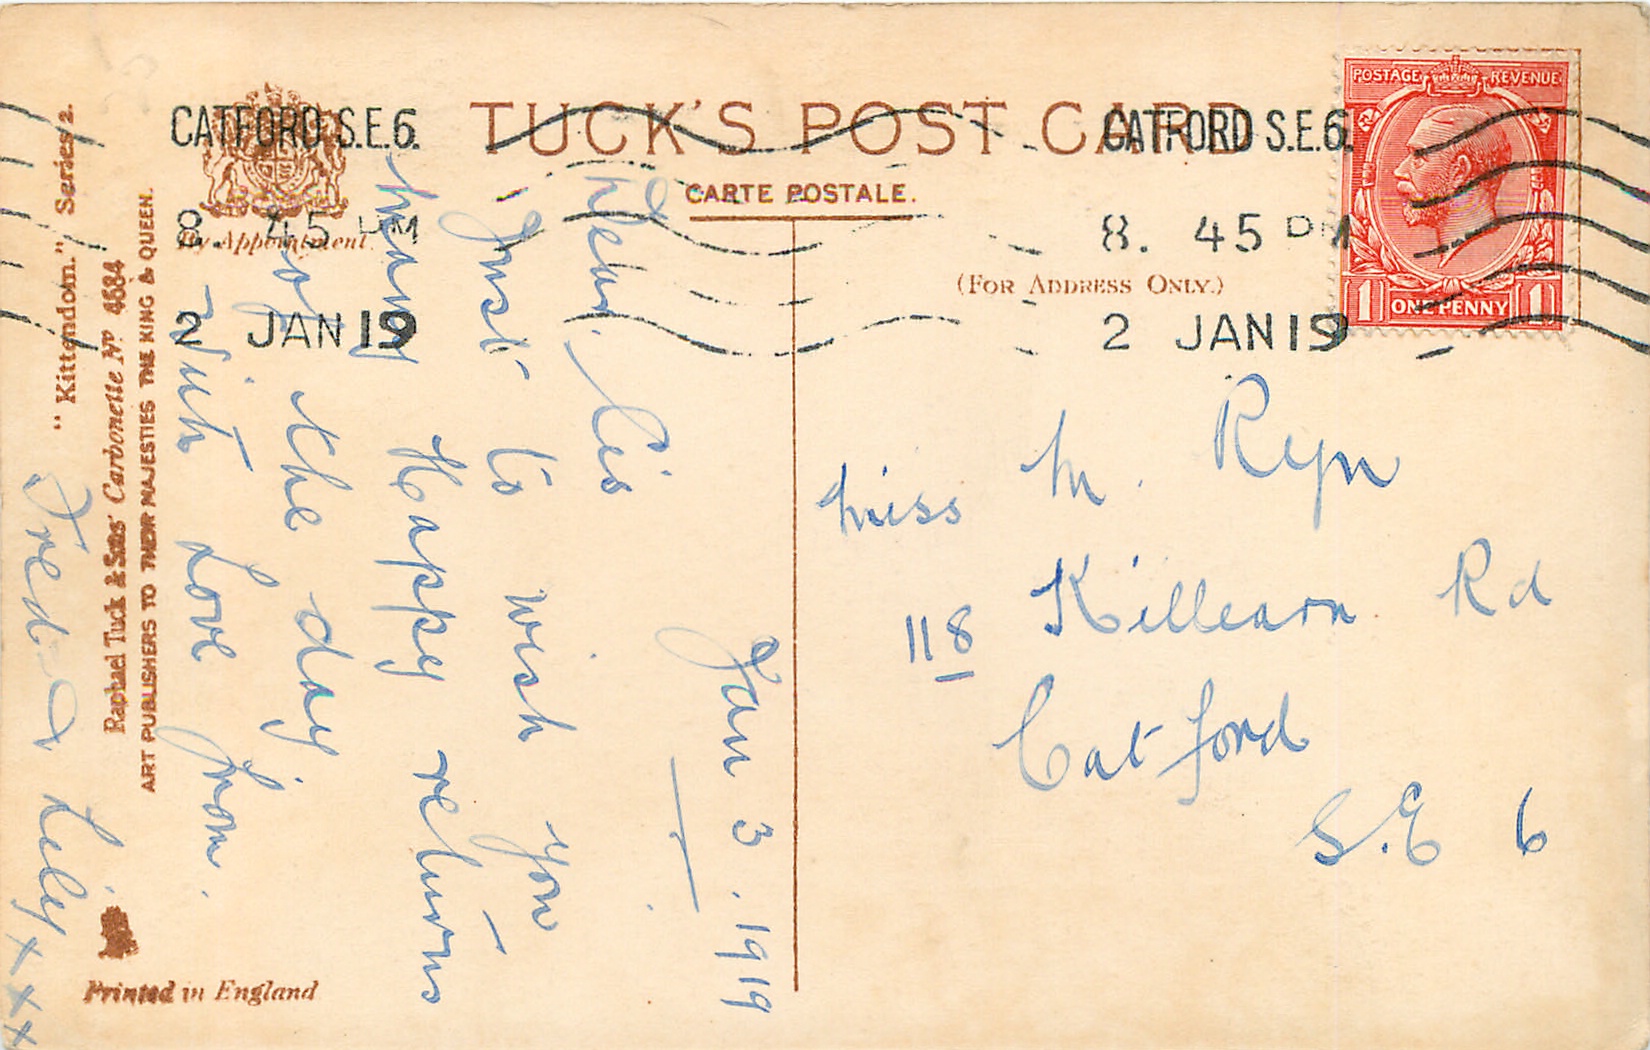 TUCK'S POST CARD
CARTE POSTALE.
(FOR ADDRESS ONLY.)
By Appointment
CATFORD S.E.6.
8. 45 PM
2 JAN 19
CATFORD S.E.6.
8. 45 PM
2 JAN 19
POSTAGE REVENUE
1 ONE PENNY 1
Jan 3. 1919
Dear Cis
Just to wish you
many Happy returns
of the day
With Love from
Fred & Lily xxxx
Miss M. Ryn
118 Killearn Rd
Catford
S.E 6
"Kittendom." Series 2.
Raphael Tuck & Sons' Carbonette No 4684
ART PUBLISHERS TO THEIR MAJESTIES THE KING & QUEEN.
Printed in England